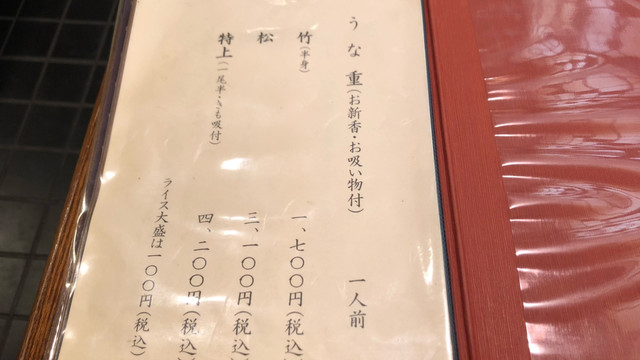 うな重(お新香・お吸い物付) 一人前
竹(半身) 一、七〇〇円(税込
松 三、一〇〇円(税込
特上(一尾半・きも吸付) 四、二〇〇円(税込
ライス大盛は一〇〇円(税込)